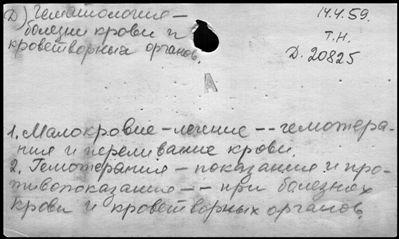 Д) Гематология —
болезни крови и
кроветворных органов.
14.4.59.
Т.Н.
Д. 20825
А
1. Малокровие – лечение – – гемотера-
пия и переливание крови.
2. Гемотерапия – показания и про-
тивопоказания – – при болезнях
крови и кроветворных органов.